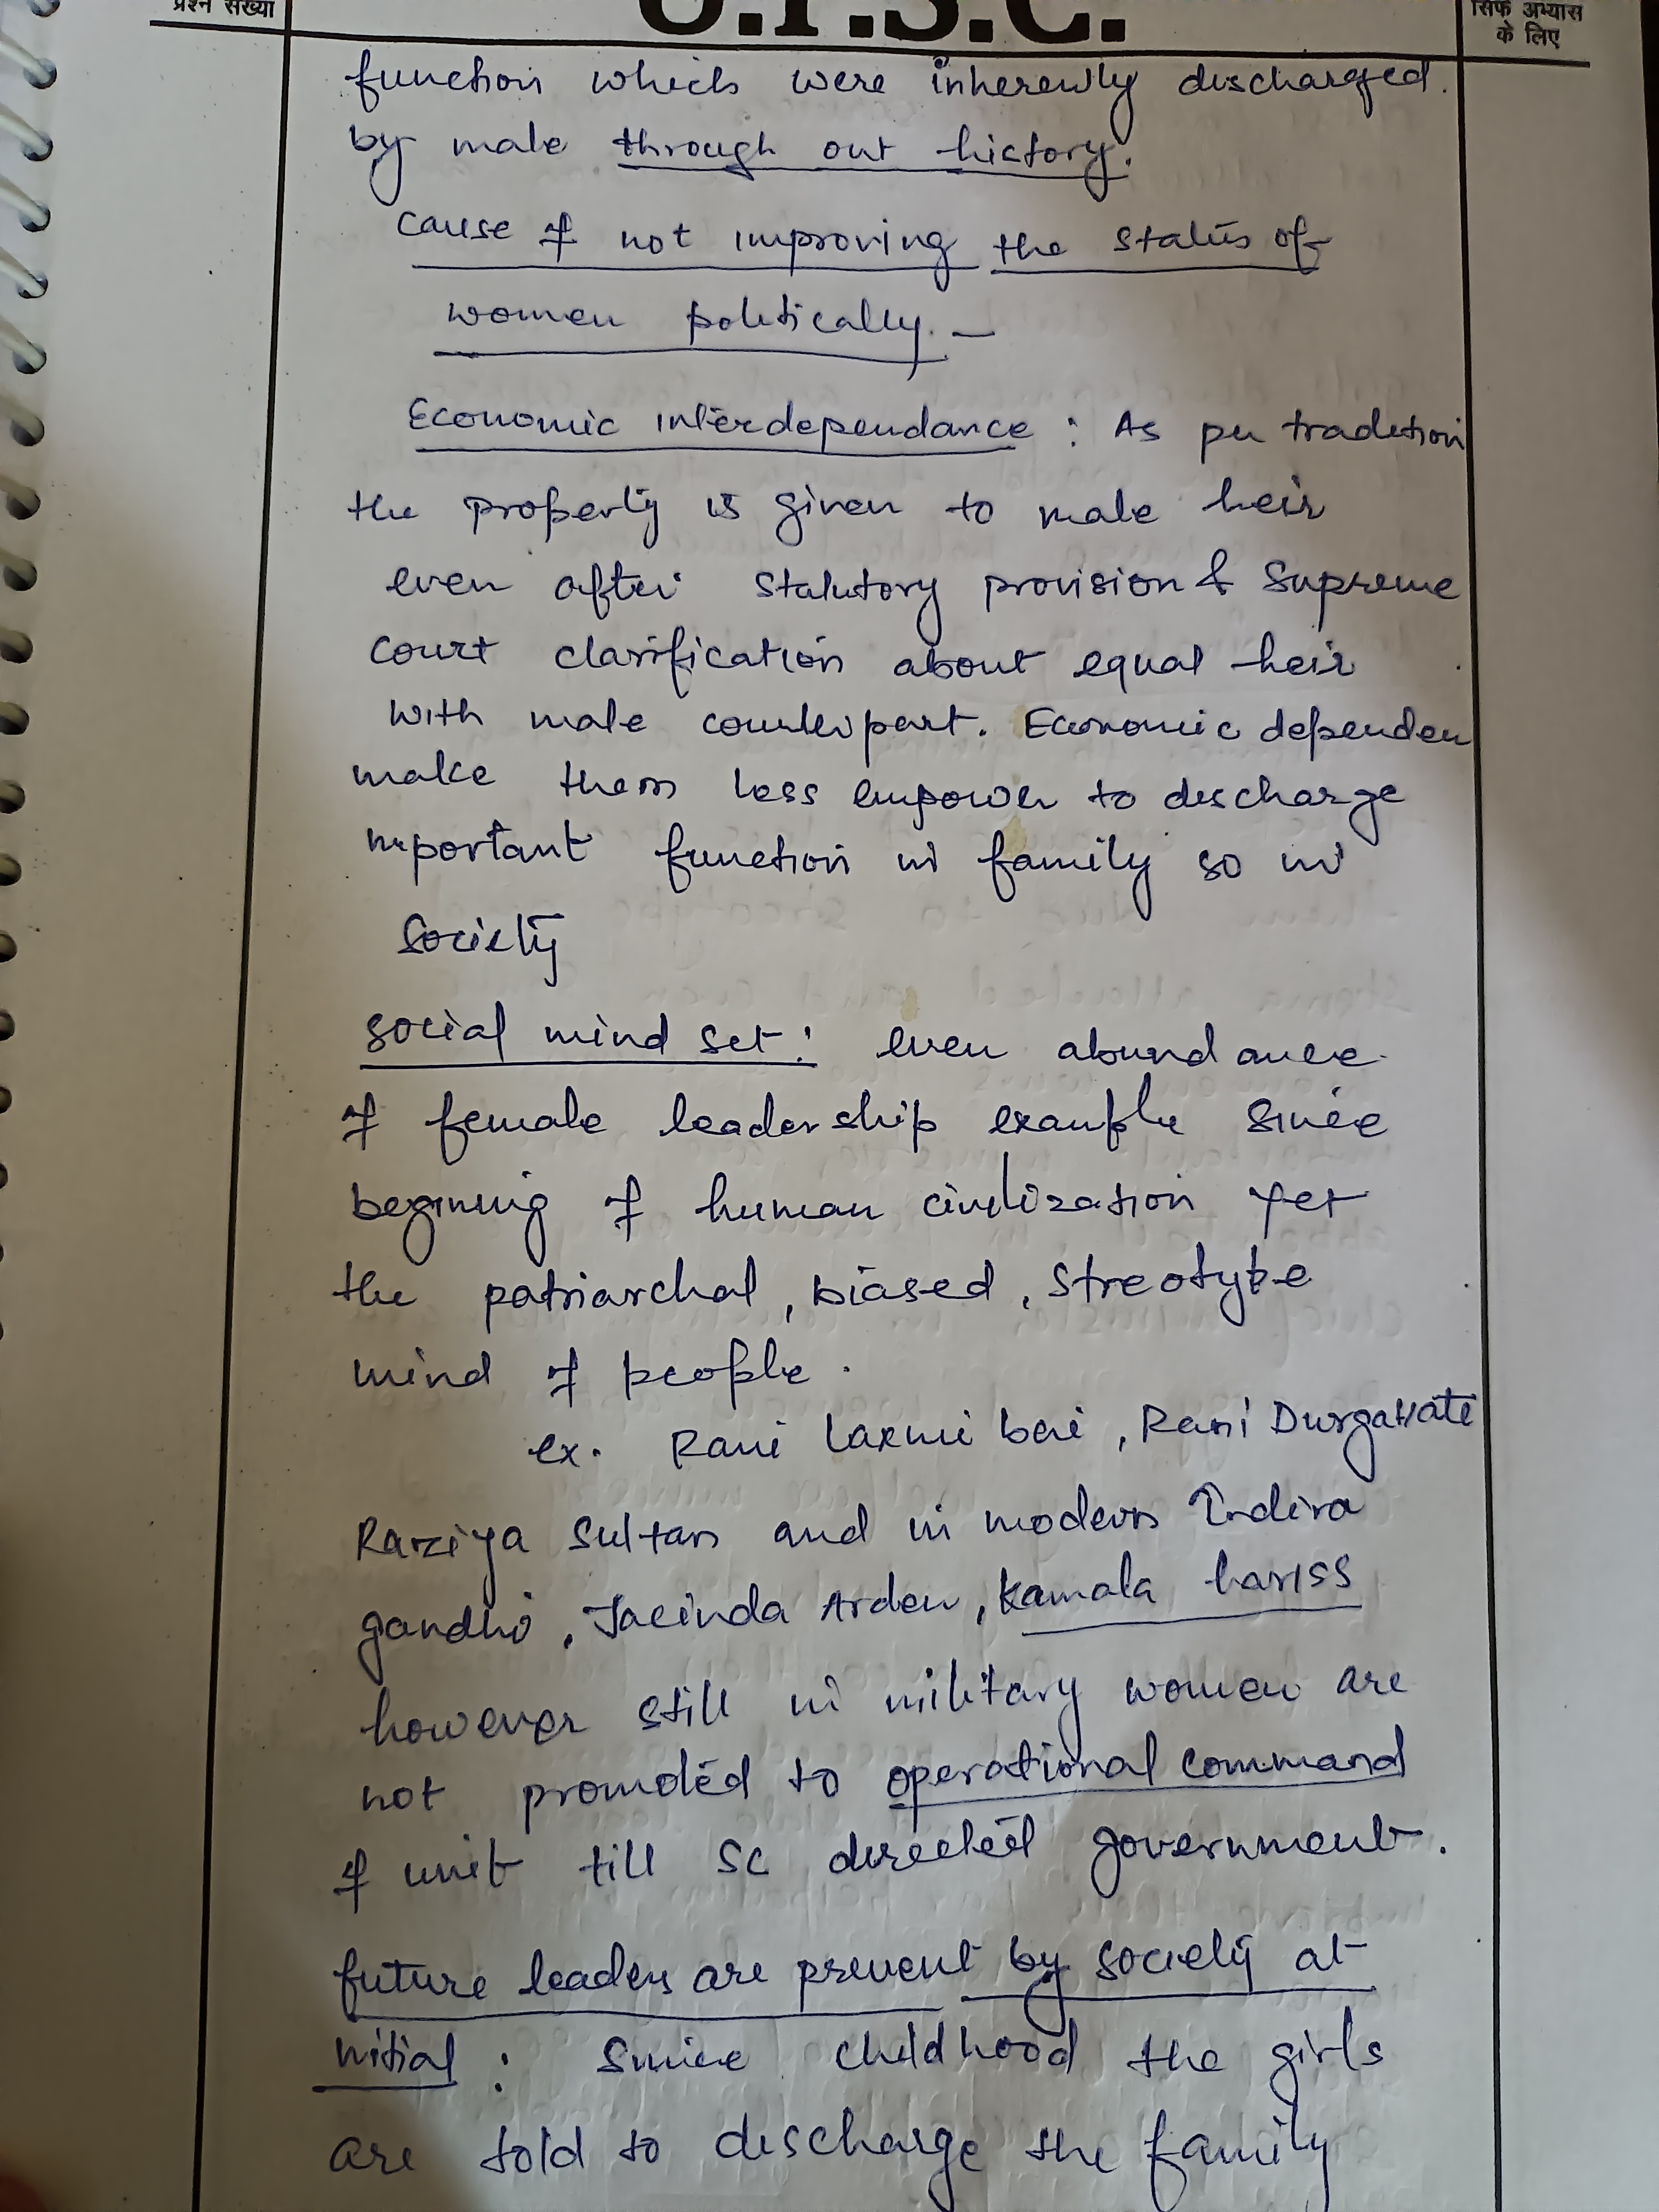 प्रश्न संख्या
U.P.S.C.
सिर्फ अभ्यास
के लिए
function which were inherently discharged.
by male through out history.
cause of not improving the status of
women politically. -
Economic interdependance : As per tradition
the property is given to male heir
even after statutory provision & Supreme
court clarification about equal heir
with male counterpart. Economic dependen
make them less empower to discharge
important function in family so in
society
social mind set : even abundance
of female leadership example since
begining of human civilization yet
the patriarchal, biased, streotype
mind of people.
ex. Rani Laxmi bai, Rani Durgavati
Raziya Sultan and in modern Indira
gandhi, Jacinda Arden, Kamala hariss
however still in military women are
not promoted to operational command
of unit till SC directed government.
future leaders are prevent by society at
initial : Since childhood the girls
are told to discharge the family